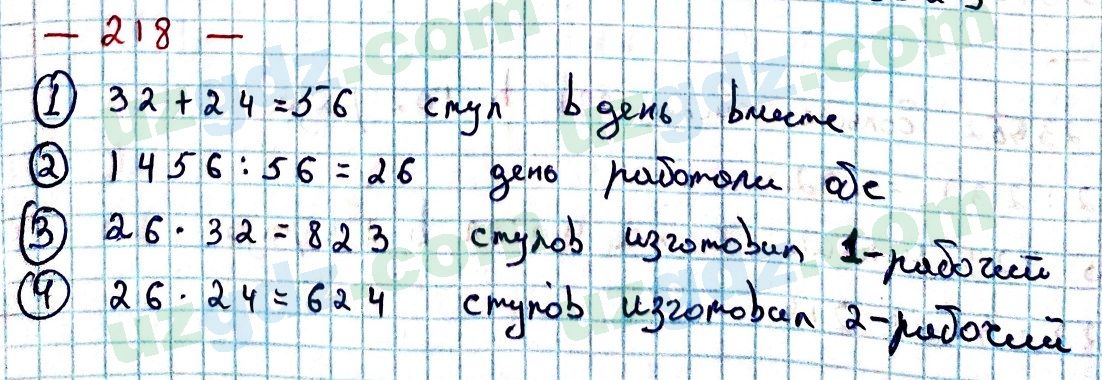 — 218 —
① 32 + 24 = 56 стул в день вместе
② 1456 : 56 = 26 день работали обе
③ 26 · 32 = 823 стулов изготовил 1-рабочий
④ 26 · 24 = 624 стулов изготовил 2-рабочий
uzgdz.com